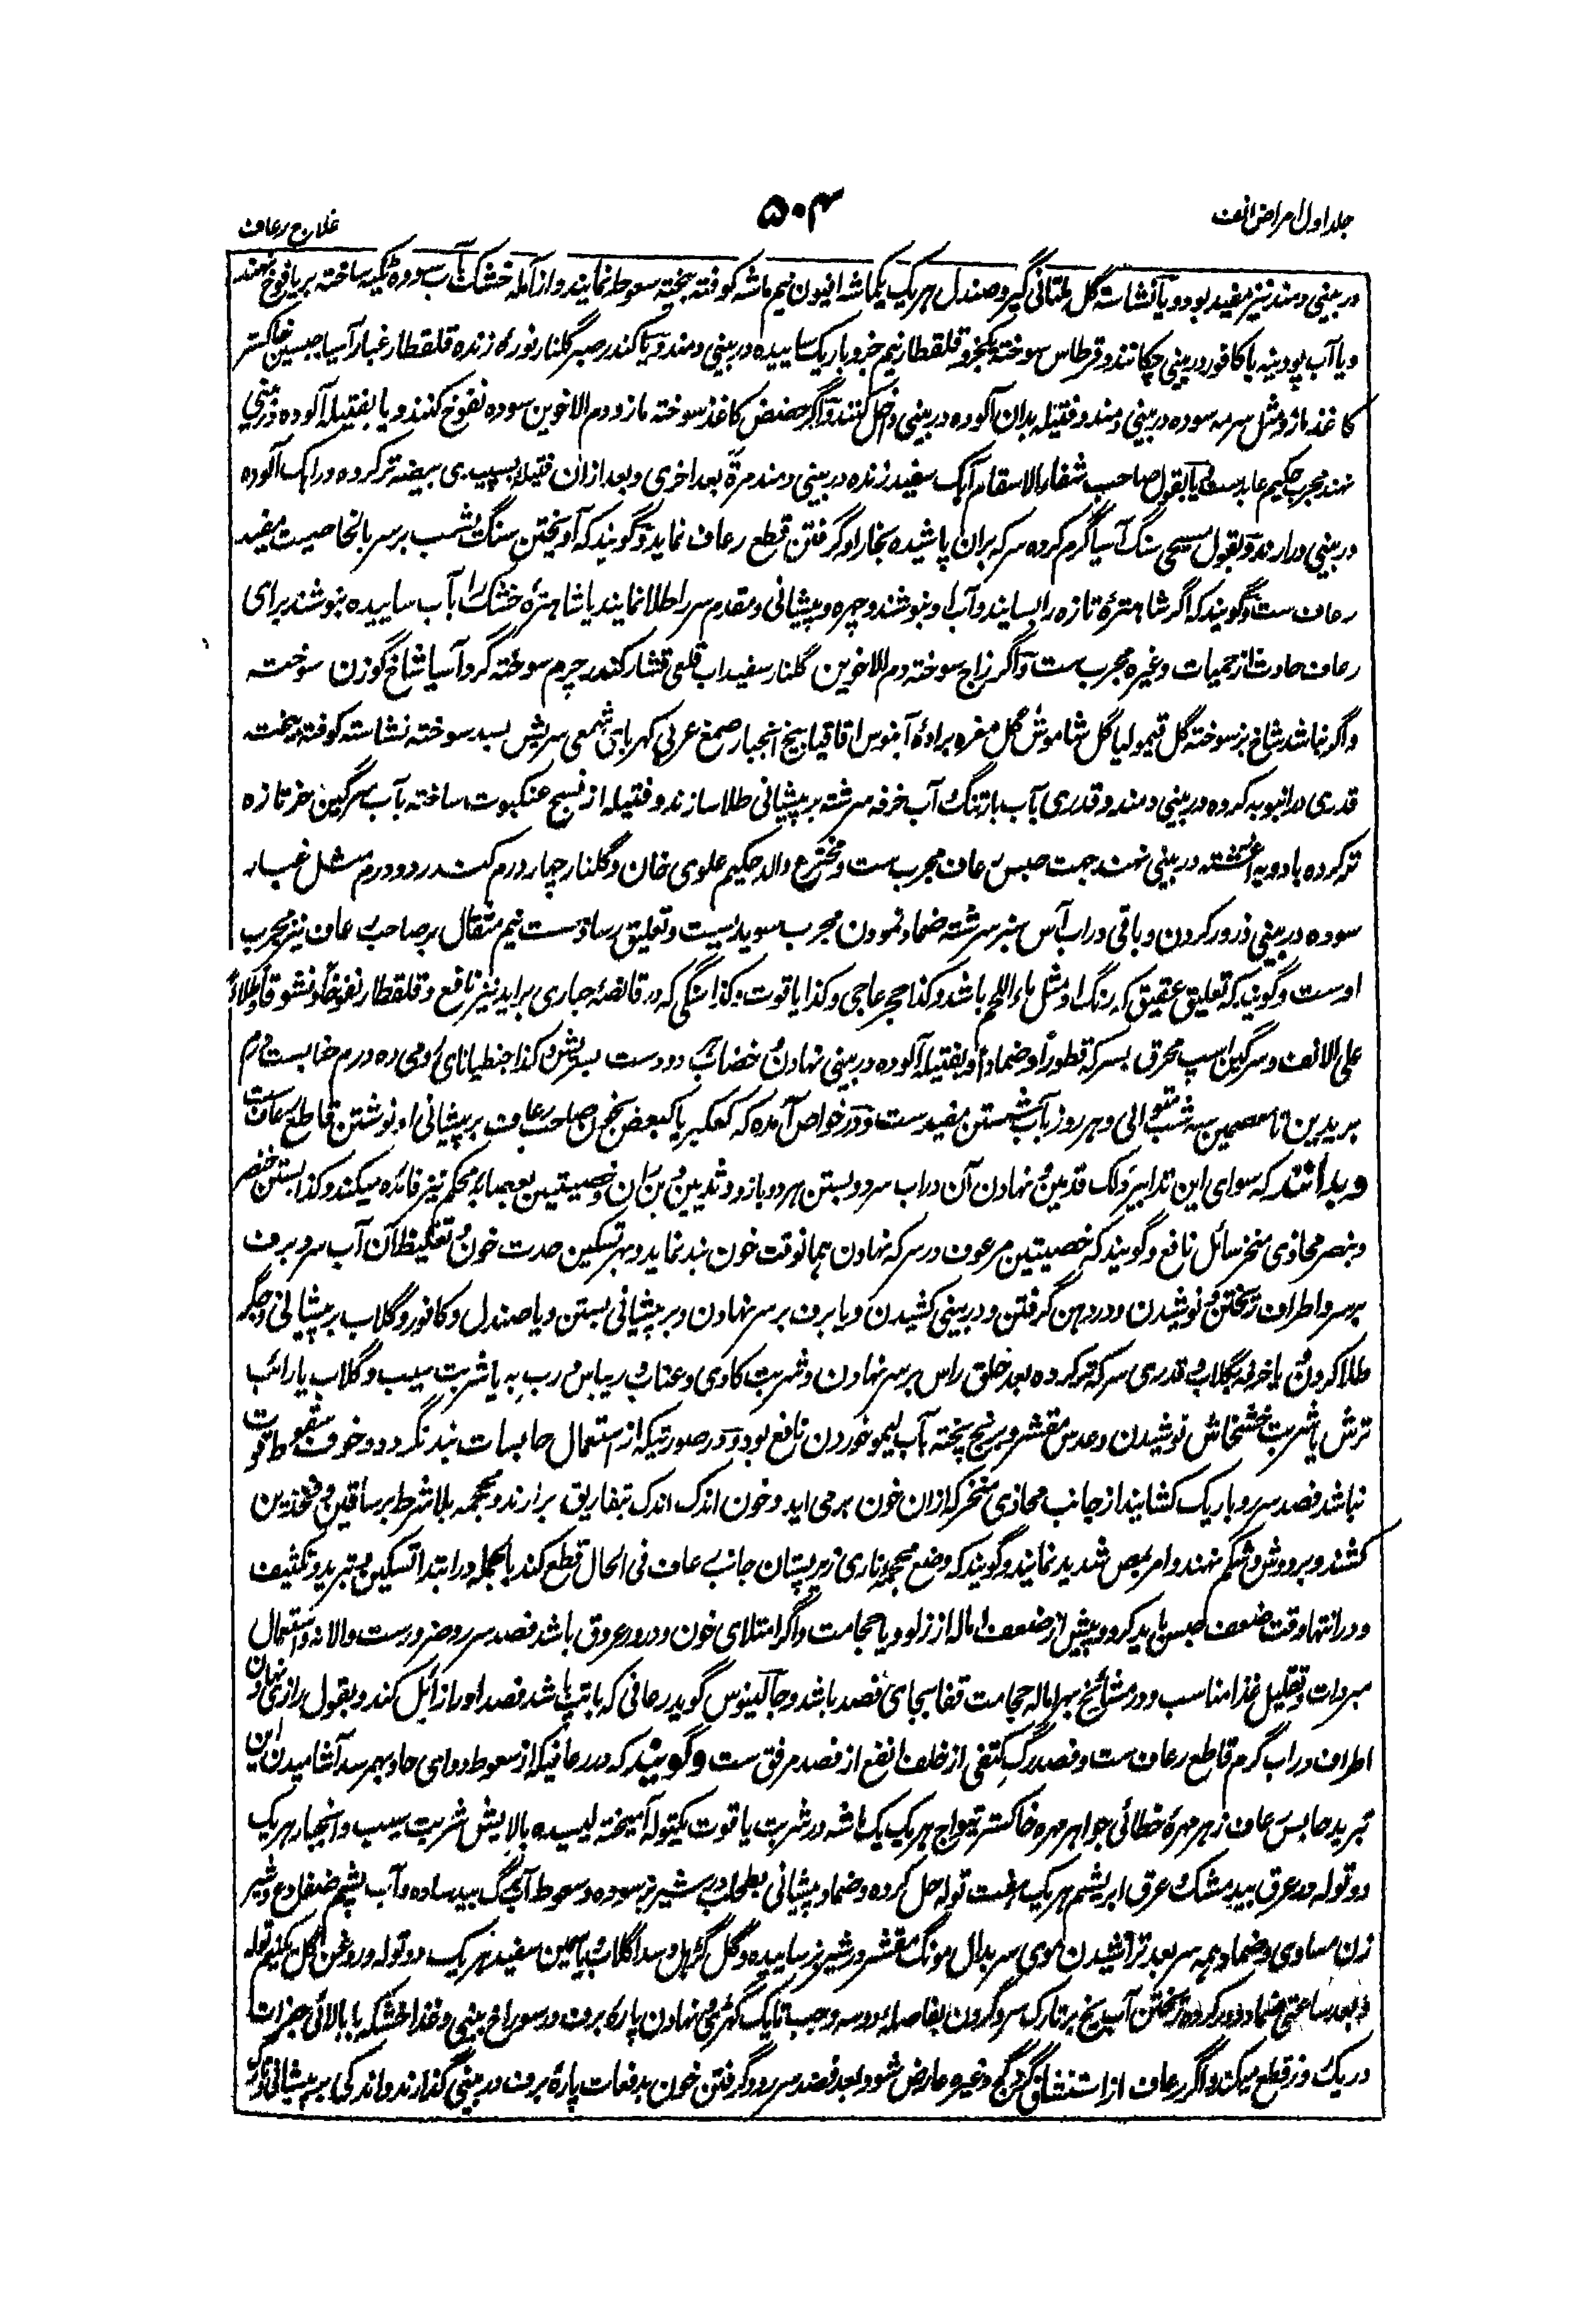 جلد اول امراض انف
۵۰۴
علاج رعاف
در بینی دمند نیز مفید بود و یا نشاسته گل ملتانی گیرو صندل هر یک یکماشه افیون نیم ماشه کوفته بیخته سعوط نمایند و از آمله خشک بآب سوده ٹکیه ساخته بر یافوخ نهند
و یا آب پودینه با کافور در بینی چکانند و قرطاس سوخته یکجزو قلقطار نیم جزو باریک ساییده در بینی دمند و یا کندر صبر گلنار نوره زنده قلقطار غبار آسیا جبسین خاکستر
کاغذ مازو مثل سرمه سوده در بینی دمند و فتیله بدان آلوده در بینی داخل کنند و اگر حضض کاغذ سوخته مازو دم الاخوین سوده نفوخ کنند و یا بفتیله آلوده در بینی
نهند مجرب حکیم عابد ست و یا بقول صاحب شفاء الاسقام آهک سفید زنده در بینی دمند مرة بعد اخری و بعد ازان فتیله بسپیدی بیضه تر کرده در آهک آلوده
در بینی دارند و بقول مسیحی سنگ آسیا گرم کرده سرکه بران پاشیده بخار او گرفتن قطع رعاف نماید و گویند که آویختن سنگ یشب بر سر بالخاصیت مفید
رعاف ست و گویند که اگر شاهترۀ تازه را بسایند و آب او بنوشند و چهره و پیشانی و مقدم سر را طلا نمایند یا شاهترۀ خشک را بآب ساییده بنوشند برای
رعاف حادث از حمیات و غیره مجرب ست و اگر زاج سوخته دم الاخوین گلنار سفیداب قلعی قشار کندر چرم سوخته گرد آسیا شاخ گوزن سوخته
و اگر نباشد شاخ بز سوخته گل قیمولیا گل شاموش گل مغره برادۀ آبنوس اقاقیا بیخ انجبار صمغ عربی کهربای شمعی سریش بسد سوخته نشاسته کوفته بیخته
قدری در انبوبه کرده در بینی دمند و قدری بآب بارتنگ آب خرفه سرشته بر پیشانی طلا سازند و فتیله از نسج عنکبوت ساخته بآب سرگین خر تازه
تر کرده بادویه آغشته در بینی نهند جهت حبس رعاف مجرب ست و مخترع والد حکیم علوی خان و گلنار چهار درم کندر دو درم مثل غبار
سوده در بینی ذرور کردن و باقی در آب آس سبز سرشته ضماد نمودن مجرب سویدیست و تعلیق بسد نیم مثقال بر صاحب رعاف نیز مجرب
اوست و گویند که تعلیق عقیق که رنگ او مثل ماء اللحم باشد و کذا حجر عاجی و کذا یاقوت و کذا سنگی که در قانصۀ حباری براید نیز نافع و قلقطار نفوخاً و نشوقاً و طلاءً
علی الانف و سرگین اسپ محرق بسرکه قطوراً و ضماداً و بفتیله آلوده در بینی نهادن و خضاب دو دست بسریش و کذا جنطیانای رومی ده درم حنا بست درم
بر یدین تا معصمین سه شب متوالی و هر روز بآب شستن مفید ست و در خواص آمده که کهکیر یا کبعض بخون صاحب رعاف بر پیشانی او نوشتن قاطع رعاف ست
و بدانند که سوای این تدابیر دلک قدمین و نهادن آن در آب سرد و بستن هر دو بازو و ثدیین و بن ران و خصیتین بعصابه محکم نیز فائده میکند و کذا بستن خنصر
و بنصر محاذی منخر سائل نافع و گویند که خصیتین مرعوف در سرکه نهادن همانوقت خون بند نماید و بهر تسکین حدت خون و تغلیظ آن آب سرد برف
بر سر و اطراف ریختن و نوشیدن و در دهن گرفتن و در بینی کشیدن و یا برف بر سر نهادن و بر پیشانی بستن و یا صندل و کافور و گلاب بر پیشانی و جگر
طلا کردن و یا خرقه بگلاب و قدری سرکه تر کرده بعد حلق راس بر سر نهادن و شربت کادی و عناب و ریباس و رب به یا شربت سیب و گلاب یا رائب
ترش یا شربت خشخاش نوشیدن و عدس مقشر و برنج پخته بآب لیمو خوردن نافع بود و در صورتیکه از استعمال حابسات بند نگردد و خوف سقوط قوت
نباشد فصد سررو باریک کشایند از جانب محاذی منخر که ازان خون برمی آید و خون اندک اندک بتفاریق برارند و محجمه بلا شرط بر ساقین و فخذین
کشند و بر دوش و شکم نهند و امر بمص شدید نمایند و گویند که وضع محجمه ناری زیر پستان جانب رعاف فی الحال قطع کند بالجمله در ابتدا تسکین و تبرید و تکثیف
و در انتها وقت ضعف حبس باید کرد و پیش از ضعف اماله از زلو و یا حجامت و اگر امتلای خون و درور عروق باشد فصد سررو ضرورست والا نه و استعمال
مبردات و تقلیل غذا مناسب و در مشائخ بهر اماله حجامت قفا بجای فصد باشد و جالینوس گوید رعافی که با تپ باشد فصد او را زائل کند و بقول رازی نهادن
اطراف در آب گرم قاطع رعاف ست و فصد رگ کتفی از خلف انفع از فصد مرفق ست و گویند که در رعافیکه از سعوط دوای حاد بهم رسد آشامیدن این
تبرید حابس رعاف زهر مهرۀ خطائی جواهر مهره خاکستر تیواج هر یک یک ماشه در شربت یاقوت یکتوله آمیخته لیسیده بالایش شربت سیب و انجبار هر یک
دو توله در عرق بیدمشک عرق ابریشم هر یک هفت توله حل کرده و ضماد پیشانی بطحلب در شیر بز سوده و سعوط آب برگ بید ساده و آب پشم ضفادع و شیر
زن مساوی و ضماد همه سر بعد تراشیدن موی سر بدال مونگ مقشر در شیر بز ساییده و گل گڑهل و سداگلاب یاسمین سفید هر یک دو توله و روغن گل یکنیم توله
و بعد ساعتی ضماد دور کرده ریختن آب یخ بر تارک سر و گردن بفاصلۀ دو سه وجب تا یک گهڑی و نهادن پاره برف در سوراخ بینی و غذا خشکه با بالائی جغرات
در یک روز قطع میکند و اگر رعاف از استنشاق گهی گرگج و غیره عارض شود بعد فصد سررو و گرفتن خون بدفعات پارۀ برف در بینی گذارند و اندکی بر پیشانی و تارک